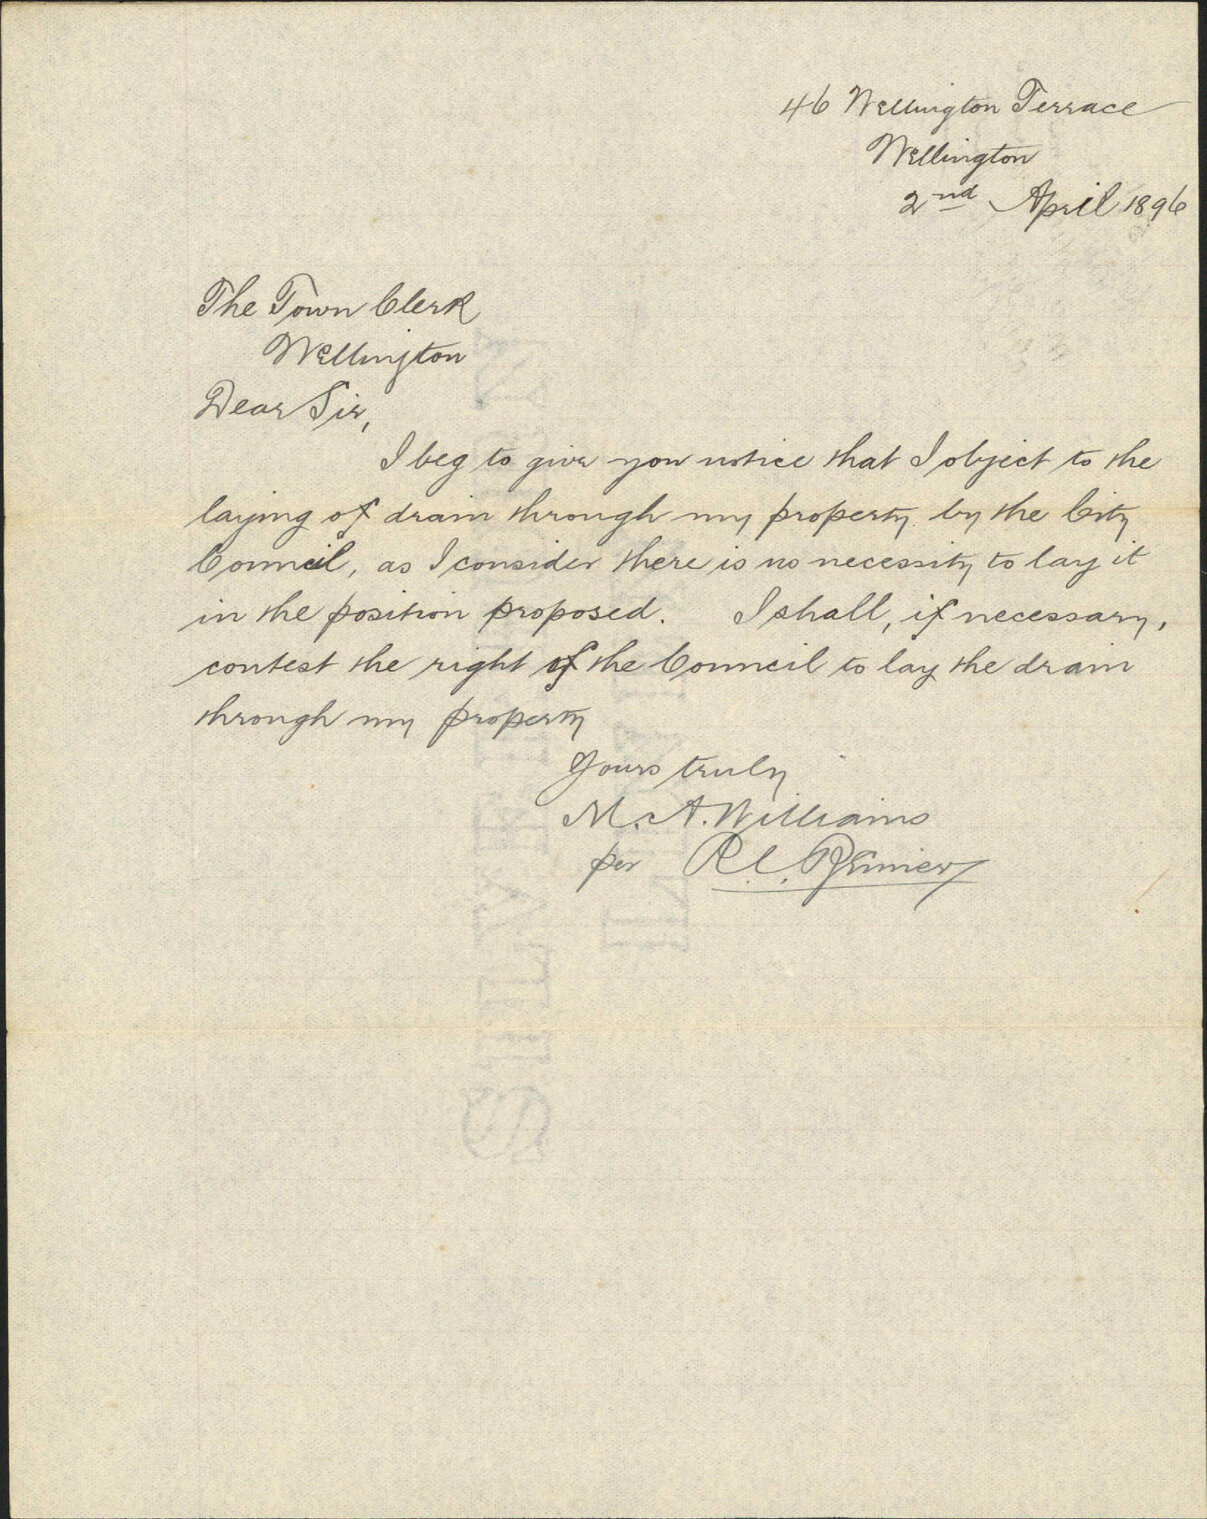 46 Wellington Terrace
Wellington
2nd April 1896
The Town Clerk
Wellington
Dear Sir,
I beg to give you notice that I object to the
laying of drain through my property by the City
Council, as I consider there is no necessity to lay it
in the position proposed. I shall, if necessary,
contest the right of the Council to lay the drain
through my property
Yours truly
M. A. Williams
per R. C.